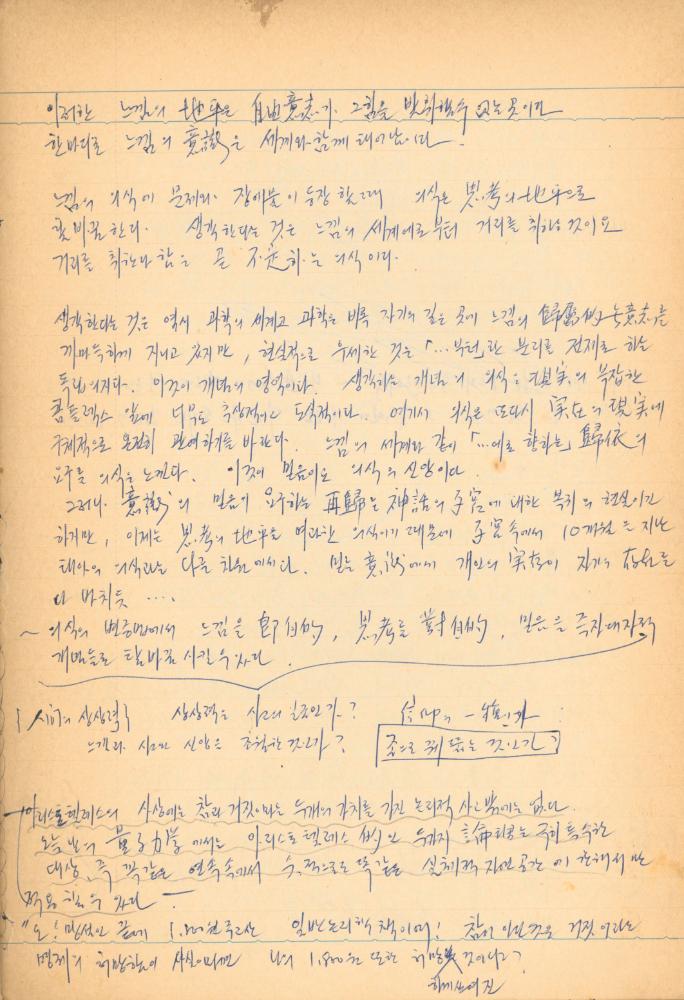 이러한 느낌의 地平은 自由意志가 그 힘을 발휘할 수 없는 곳이다
한마디로 느낌의 意識은 세계와 함께 태어남이다.
느낌의 의식에 문제와 장애물이 등장할 때 의식은 思考의 地平으로
탈바꿈한다. 생각한다는 것은 느낌의 세계에로부터 거리를 취하는 것이요
거리를 취한다 함은 곧 不定하는 의식이다.
생각한다는 것은 역시 과학의 세계고 과학은 비록 자기의 깊은 곳에 느낌의 歸屬的 無意志를
까마득하게 지니고 있지만, 현실적으로 우세한 것은 「…부터」란 분리를 전제로 하는
독립의지다. 이것이 개념의 영역이다. 생각하는 개념의 의식은 現実의 복잡한
콤플렉스 앞에 너무도 추상적이고 도식적이다. 여기서 의식은 또다시 実在의 現実에
구체적으로 온전히 관여하기를 바란다. 느낌의 세계와 같이 「…에로 향하는」 歸依의
요구를 의식은 느낀다. 이것이 믿음이요 의식의 신앙이다.
그러나 意識의 믿음이 요구하는 再歸은 神話의 子宮에 대한 복귀의 현실이긴
하지만, 이제는 思考의 地平을 여과한 의식이기 때문에 子宮속에서 10개월을 지난
태아의 의식과는 다른 차원에서다. 믿는 意識에서 개인의 実存이 자기의 存在를
다 바치듯 ....
~ 의식의 변증법에서 느낌을 即自的, 思考를 對自的, 믿음을 즉자대자적
개념들로 탈바꿈 시킬 수 있다.
상상력은 사고의 일종인가? 信仰의 一種인가
느낌과 사고와 신앙은 조합한 것인가?
아리스토텔레스의 사상에는 참과 거짓이라는 두개의 가치를 가진 논리적 사고 밖에는 없다.
오늘날의 量子力學에서는 아리스토텔레스的인 두가지 評価 극히 특수한
대상, 즉 꼭같은 연속 속에서 수적으로도 똑같은 실체적 자연공간이 한해서만
적용될 수 있다 —
"오! 맙소사 끝에 1,800원 주고산 일반논리학 책이여! 참이 아닌 것은 거짓이라는
명제가 허망함이 사실이라면 나의 1,800원 또한 허망 것이냐?